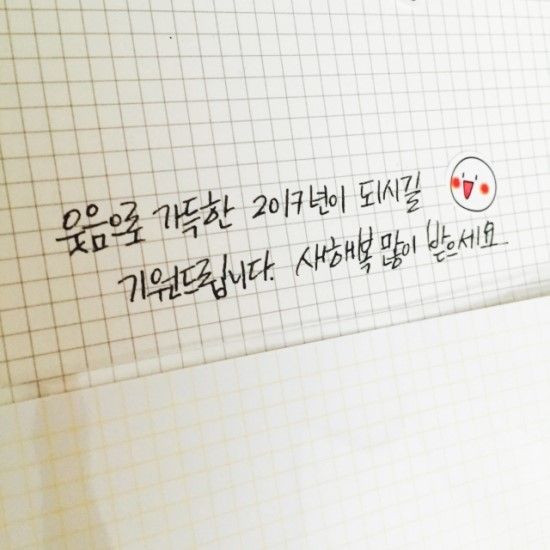 웃음으로 가득한 2017년이 되시길
기원드립니다. 새해복 많이 받으세요